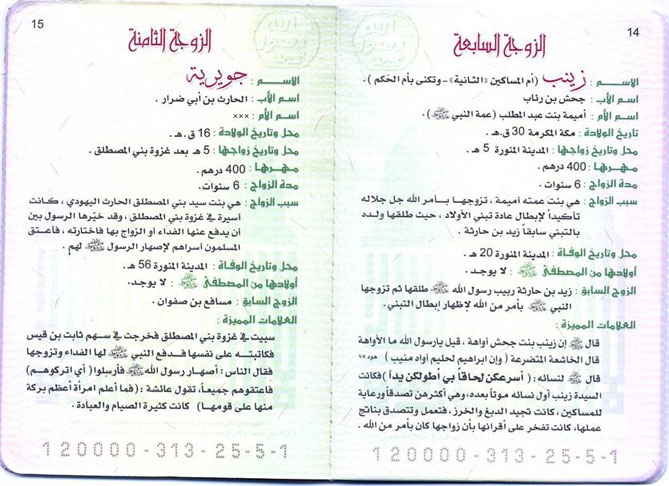 14
الزوجة السابعة
الاسم : زينب (أم المساكين «الثانية» - وتكنى بأم الحكم ) .
اسم الأب : جحش بن رئاب
اسم الأم : أميمة بنت عبد المطلب (عمة النبي ﷺ) .
تاريخ الولادة : مكة المكرمة 30 ق.هـ .
محل وتاريخ زواجها : المدينة المنورة 5 هـ .
مهرها : 400 درهم .
مدة الزواج : 6 سنوات .
سبب الزواج : هي بنت عمته أميمة ، تزوجها بـأمر الله جل جلاله
تأكيداً لإبطال عادة تبني الأولاد ، حيث طلقها ولده
بالتبني سابقاً زيد بن حارثة .
محل وتاريخ الوفاة : المدينة المنورة 20 هـ .
أولادها من المصطفى ﷺ : لا يوجد .
الزوج السابق : زيد بن حارثة ربيب رسول الله ﷺ طلقها ثم تزوجها
النبي ﷺ بأمر من الله لإظهار إبطال التبني .
العلامات المميزة :
قال ﷺ إن زينب بنت جحش أواهة ، قيل يارسول الله ما الأواهة
قال الخاشعة المتضرعة ( وإن ابراهيم لحليم أواه منيب ) هود ٧٥
قال ﷺ لنسائه : ( أسرعكن لحاقاً بي أطولكن يداً ) فكانت
السيدة زينب أول نسائه موتاً بعده، وهي أكثرهن تصدقاً ورعاية
للمساكين ، كانت تجيد الدبغ والخرز ، فتعمل وتتصدق بناتج
عملها، كانت تفخر على أقرانها بأن زواجها كان بأمر من الله .
120000-313-25-5-1
15
الزوجة الثامنة
الاسم : جويرية
اسم الأب : الحارث بن أبي ضرار .
اسم الأم : ×××
محل وتاريخ الولادة : 16 ق.هـ .
محل وتاريخ زواجها : 5 هـ بعد غزوة بني المصطلق .
مهرها : 400 درهم .
مدة الزواج : 6 سنوات .
سبب الزواج : هي بنت سيد بني المصطلق الحارث اليهودي ، كانت
أسيرة في غزوة بني المصطلق ، وقد خيّرها الرسول بين
أن يدفع عنها الفداء أو الزواج بها فاختارته ، فأعتق
المسلمون أسراهم لإصهار الرسول ﷺ لهم .
محل وتاريخ الوفاة : المدينة المنورة 56 هـ .
أولادها من المصطفى ﷺ : لا يوجد .
الزوج السابق : مسافع بن صفوان .
العلامات المميزة :
سبيت في غزوة بني المصطلق فخرجت في سهم ثابت بن قيس
فكاتبته على نفسها فدفع النبي ﷺ لها الفداء وتزوجها
فقال الناس : أصهار رسول الله ﷺ فأرسلوا ( أي اتركوهم )
فاعتقوهم جميعاً، تقول عائشة : ( فما أعلم امرأة أعظم بركة
منها على قومها ) كانت كثيرة الصيام والعبادة .
120000-313-25-5-1